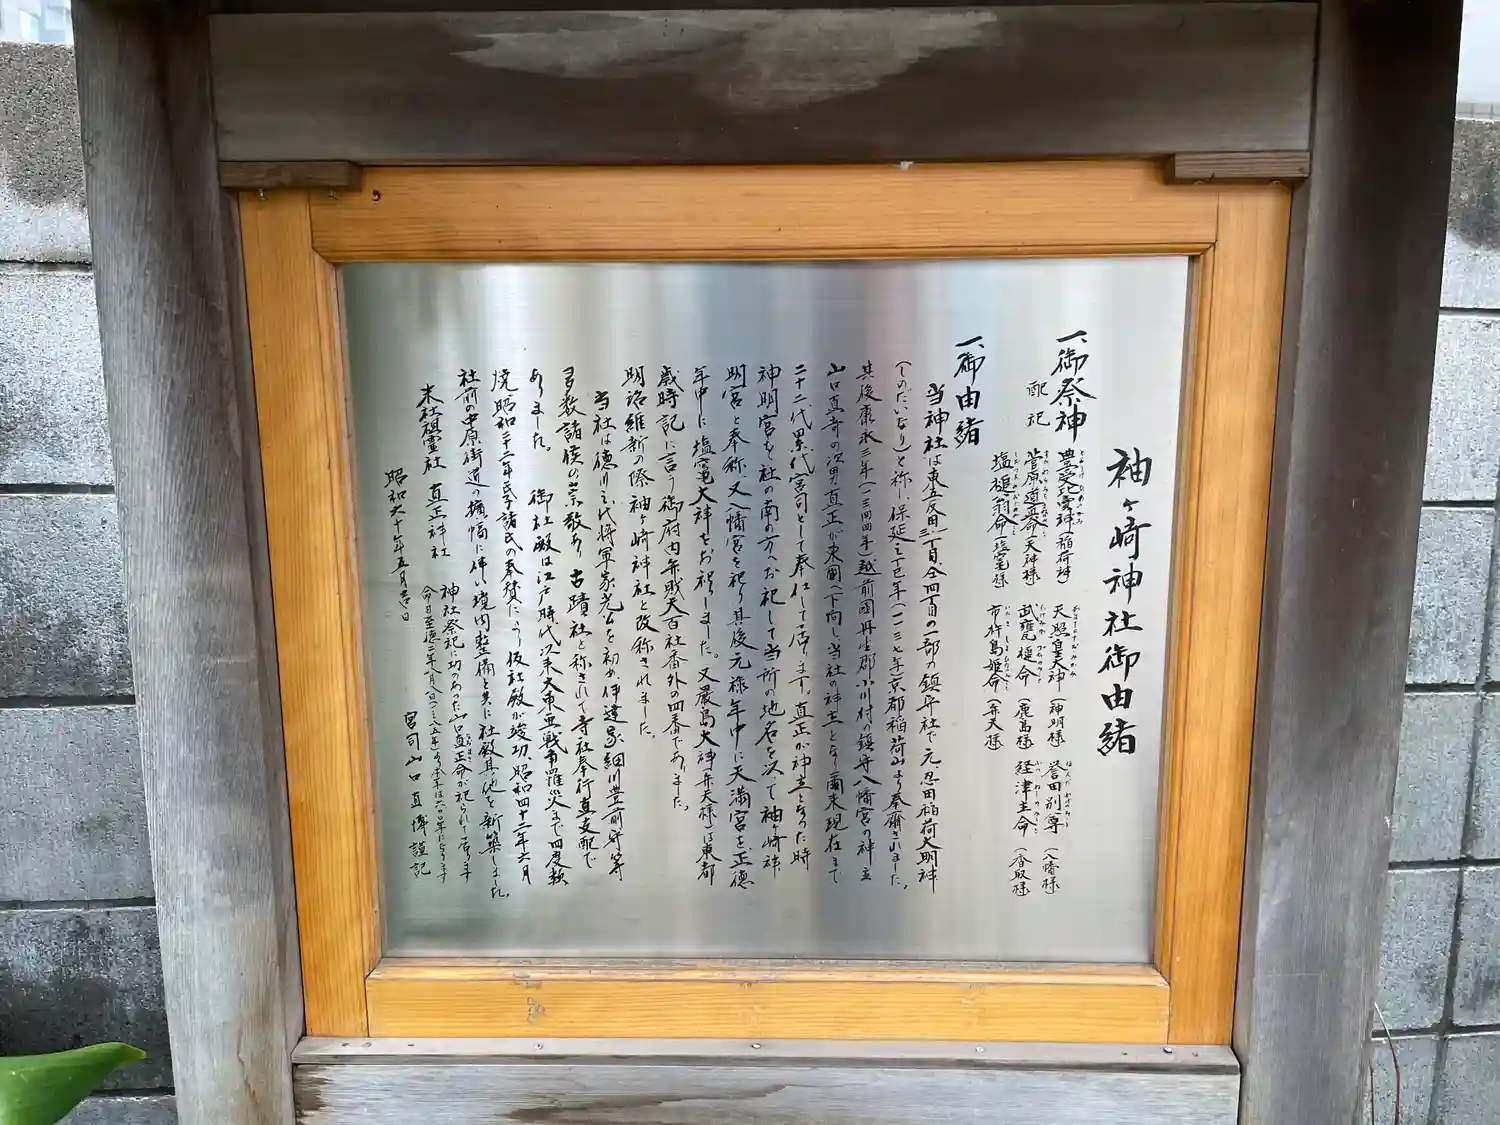 袖ヶ崎神社御由緒
一、御祭神 豊受比賣神(稲荷神 天照皇大神(神明様 誉田別尊(八幡様
配祀 菅原道真命(天神様 武甕槌命(鹿島様 経津主命(香取様
塩椎翁命(塩竃様 市杵島姫命(弁天様
一、御由緒
当神社は東五反田三丁目、仝四丁目の一部の鎮守社で元、忍田稲荷大明神
(しのだいなり)と称し、保延三丁巳年(一一三七年)京都稲荷山より奉齋されました。
其後康永三年(一三四四年)越前國丹生郡小川村の鎮守八幡宮の神主
山口真奇の次男真正が東國(下向し、当社の神主となり爾来現在まで
二十二代累代宮司として奉仕して居ります。真正が神主となった時
神明宮を社の南の方へお祀して当所の地名を以って袖ヶ崎神
明宮と奉称、又八幡宮を祀り其後元禄年中に天満宮を、正徳
年中に塩竃大神をお祀しました。又嚴島大神(弁天様)は東都
歳時記に言う御府内弁財天百社番外の四番であります。
明治維新の際袖ヶ崎神社と改称されました。
当社は徳川三代将軍家光公を初め、伊達家、細川豊前守等
多数諸侯の崇敬あり、古蹟社と称されて寺社奉行真支配で
ありました。 御社殿は江戸時代以来大東亜戦争罹災まで四度類
焼、昭和二十二年氏子諸氏の奉賛により仮社殿が竣功、昭和四十二年六月
社前の中原街道の擴幅に伴い境内整備と共に社殿其他を新築しました。
末社祖霊社 真正神社 神社祭祀に功のあった山口真正命が祀られて居ります
昭和六十年五月吉日 宮司山口直 謹記